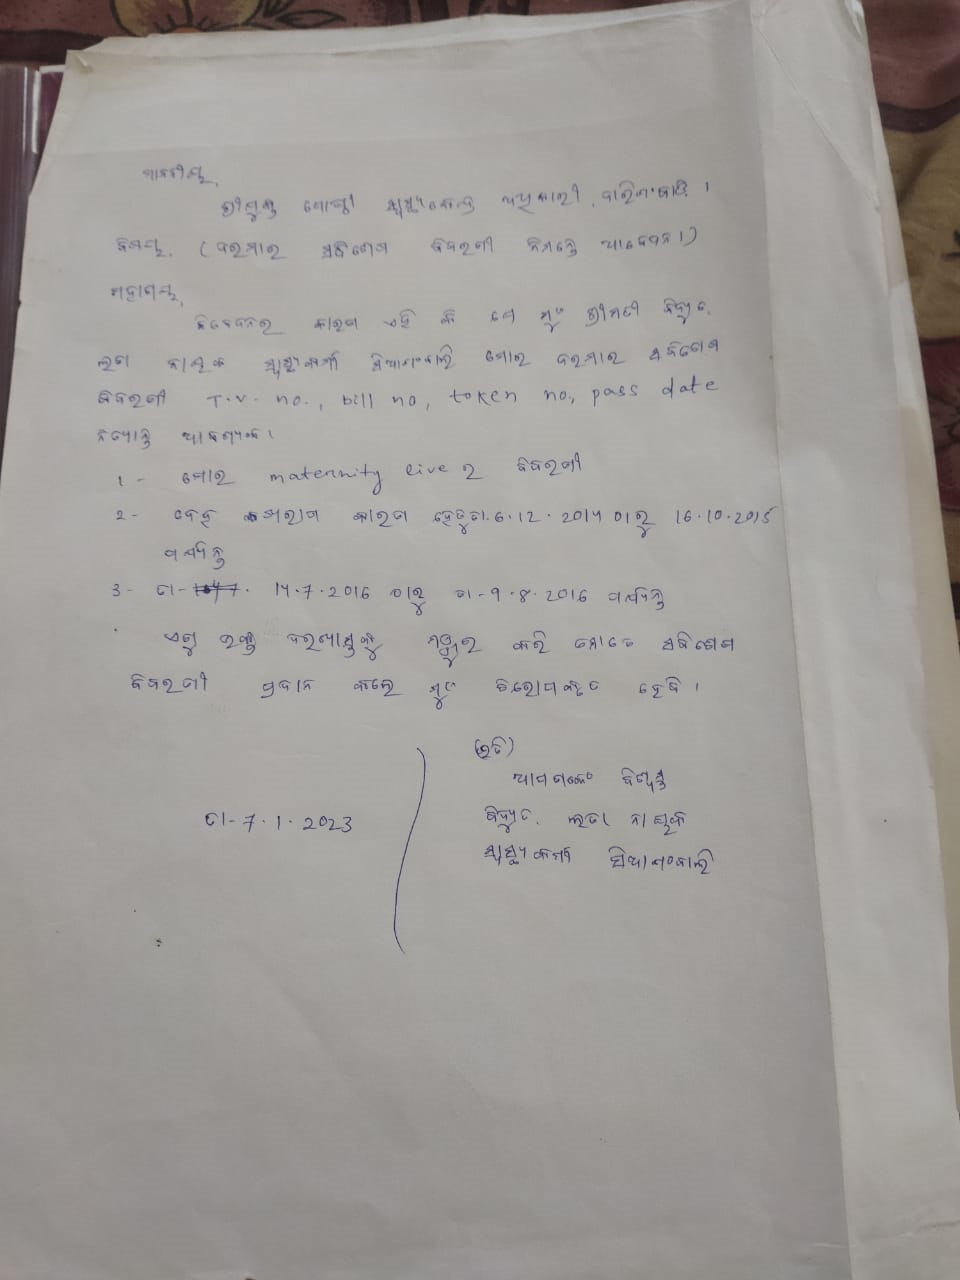 ମାନନୀୟ,
ଶ୍ରୀଯୁକ୍ତ ଗୋଷ୍ଠୀ ସ୍ୱାସ୍ଥ୍ୟକେନ୍ଦ୍ର ଅଧିକାରୀ, ଦାରିଂବାଡି ।
ବିଷୟ, (ଦରମାର ବିବରଣୀ ନିମନ୍ତେ ଆବେଦନ ।)
ମହାଶୟ,
ନିବେଦନର କାରଣ ଏହି କି ଯେ ମୁଁ ଶ୍ରୀମତୀ ବିଦ୍ୟୁତ
ଲତା ନାୟକ ସ୍ୱାସ୍ଥ୍ୟକର୍ମୀ ମୋର ଦରମାର
ବିବରଣୀ T.V. no., bill no, token no, pass date
ଆବଶ୍ୟକ ।
1 - ମୋର maternity live ର ବିବରଣୀ
2 - ଦେହ ଖରାପ କାରଣ ହେତୁ ତା. 6.12.2014 ଠାରୁ 16.10.2015
ପର୍ଯ୍ୟନ୍ତ
3 - ତା- 14.7.2016 ଠାରୁ ତା-9.8.2016 ପର୍ଯ୍ୟନ୍ତ
ଏଣୁ ଉକ୍ତ ଦରଖାସ୍ତକୁ ମଞ୍ଜୁର କରି ମୋତେ
ବିବରଣୀ ପ୍ରଦାନ କଲେ ମୁଁ ଚିରୋପକୃତ ହେବି ।
(ଇତି)
ଆପଣଙ୍କେ ବିଶ୍ୱସ୍ତ
ବିଦ୍ୟୁତ ଲତା ନାୟକ
ସ୍ୱାସ୍ଥ୍ୟକର୍ମୀ
ତା-7.1.2023